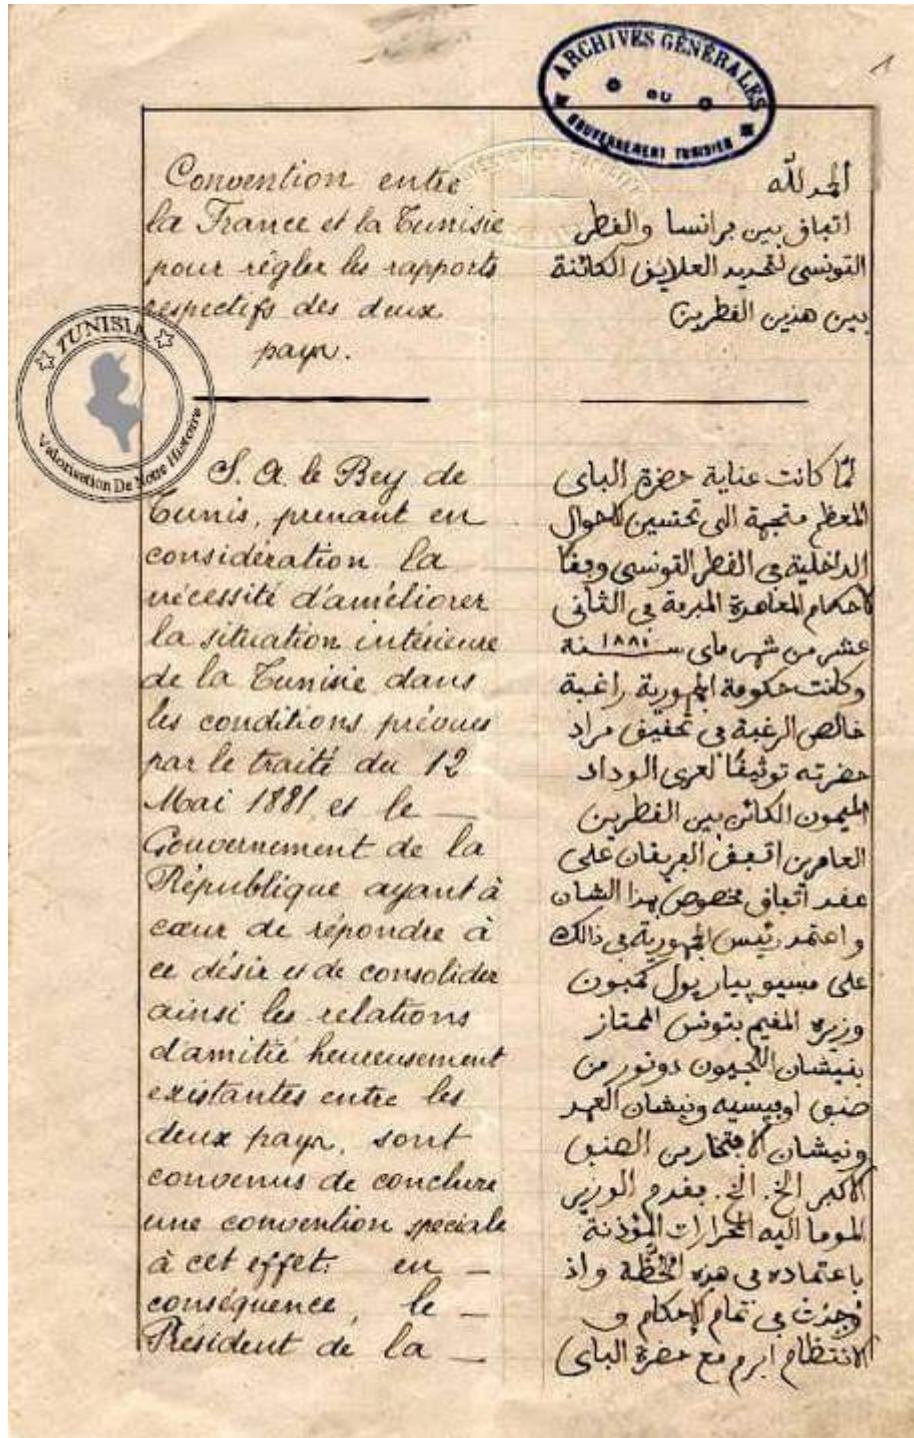 ARCHIVES GÉNÉRALES
DU
GOUVERNEMENT TUNISIEN
1
Convention entre
la France et la Tunisie
pour régler les rapports
respectifs des deux
pays.
TUNISIA
Valorisation De Notre Histoire
S. A. le Bey de
Tunis, prenant en
considération la
nécessité d'améliorer
la situation intérieure
de la Tunisie dans
les conditions prévues
par le traité du 12
Mai 1881, et le
Gouvernement de la
République ayant à
cœur de répondre à
ce désir et de consolider
ainsi les relations
d'amitié heureusement
existantes entre les
deux pays, sont
convenus de conclure
une convention spéciale
à cet effet: en
conséquence, le
Président de la
الحمد لله
اتفاق بين فرانسا والقطر
التونسي لتحديد العلايق الكائنة
بين هذين القطرين
لمّا كانت عناية حضرة الباي
المعظم متجهة الى تحسين الاحوال
الداخلية في القطر التونسي وفقا
لاحكام المعاهدة المبرمة في الثاني
عشر من شهر ماي سنة ١٨٨١
وكانت حكومة الجمهورية راغبة
خالص الرغبة في تحقيق مراد
حضرته توثيقًا لعرى الوداد
الميمون الكائن بين القطرين
العامرين اتفق الفريقان على
عقد اتفاق مخصوص بهذا الشان
واعتمد رئيس الجمهورية في ذالك
على مسيو پيار پول كمبون
وزيره المقيم بتونس الممتاز
بنيشان اللجيون دونور من
صنف اوفيسيه ونيشان العهد
ونيشان الافتخار من الصنف
الاكبر الخ. الخ. فقدم الوزير
الموما اليه المحرارات المؤذنة
باعتماده في هذه الخطّة واذ
وجدت في تمام الاحكام و
الانتظام ابرم مع حضرة الباي